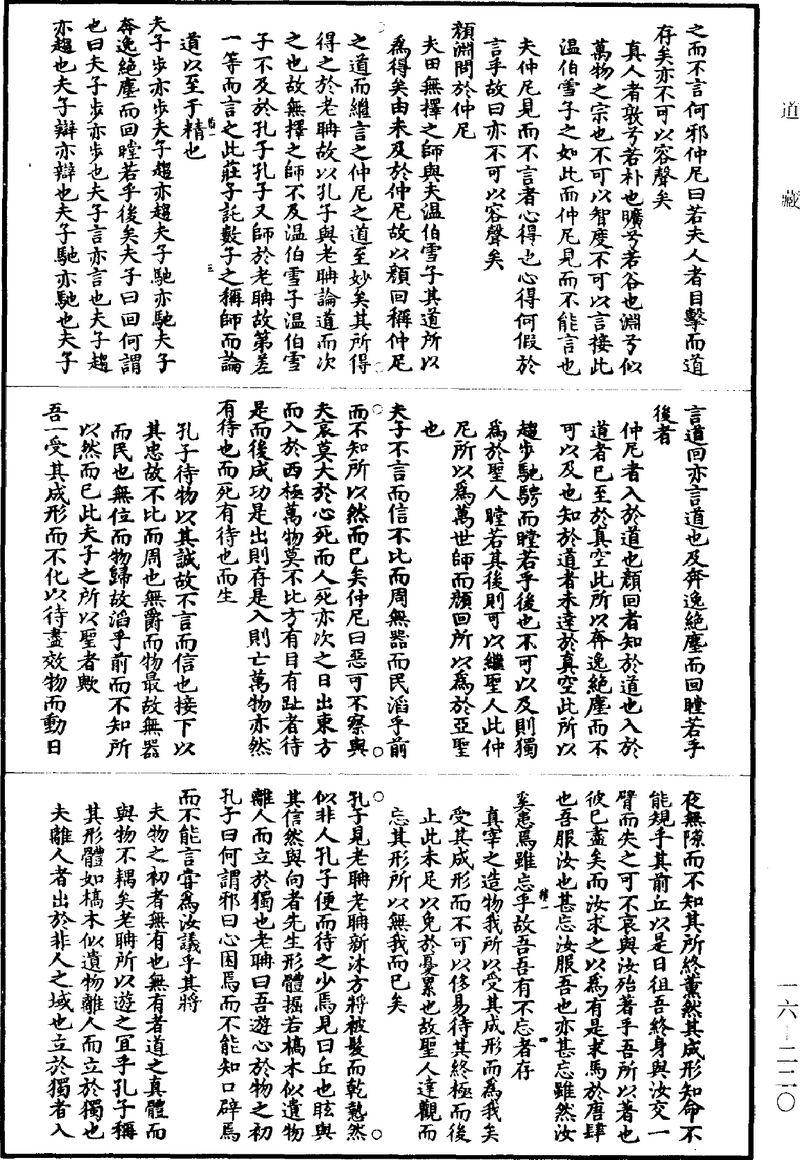 道藏
之而不言何邪仲尼曰若夫人者目擊而道
存矣亦不可以容聲矣
真人者敦兮若朴也曠兮若谷也淵兮似
萬物之宗也不可以智度不可以言接此
温伯雪子之如此而仲尼見而不能言也
夫仲尼見而不言者心得也心得何假於
言乎故曰亦不可以容聲矣
顏淵問於仲尼
夫田無擇之師與夫温伯雪子其道所以
為得矣由未及於仲尼故以顏回稱仲尼
之道而繼言之仲尼之道至妙矣其所得
得之於老聃故以孔子與老聃論道而次
之也故無擇之師不及温伯雪子温伯雪
子不及於孔子孔子又師於老聃故第差
一等而言之此莊子託數子之稱師而論
道以至于精也
夫子步亦步夫子趨亦趨夫子馳亦馳夫子
奔逸絕塵而回瞠若乎後矣夫子曰回何謂
也曰夫子步亦步也夫子言亦言也夫子趨
亦趨也夫子辯亦辯也夫子馳亦馳也夫子
言道回亦言道也及奔逸絕塵而回瞠若乎
後者
仲尼者入於道也顏回者知於道也入於
道者已至於真空此所以奔逸絕塵而不
可以及也知於道者未達於真空此所以
趨步馳騁而瞠若乎後也不可以及則獨
為於聖人瞠若其後則可以繼聖人此仲
尼所以為萬世師而顏回所以為於亞聖
也
夫子不言而信不比而周無器而民滔乎前
而不知所以然而已矣仲尼曰惡可不察與
夫哀莫大於心死而人死亦次之日出東方
而入於西極萬物莫不比方有目有趾者待
是而後成功是出則存是入則亡萬物亦然
有待也而死有待也而生
孔子待物以其誠故不言而信也接下以
其忠故不比而周也無爵而物最故無器
而民也無位而物歸故滔乎前而不知所
以然而已此夫子之所以聖者歟
吾一受其成形而不化以待盡效物而動日
夜無隙而不知其所終薰然其成形知命不
能規乎其前丘以是日徂吾終身與汝交一
臂而失之可不哀與汝殆著乎吾所以著也
彼已盡矣而汝求之以為有是求馬於唐肆
也吾服汝也甚忘汝服吾也亦甚忘雖然汝
奚患焉雖忘乎故吾吾有不忘者存
真宰之造物我所以受其成形而為我矣
受其成形而不可以侈易待其終極而後
止此未足以免於憂累也故聖人達觀而
忘其形所以無我而已矣
孔子見老聃老聃新沐方將被髮而乾慹然
似非人孔子便而待之少焉見曰丘也眩與
其信然與向者先生形體掘若槁木似遺物
離人而立於獨也老聃曰吾遊心於物之初
孔子曰何謂邪曰心困焉而不能知口辟焉
而不能言嘗為汝議乎其將
夫物之初者無有也無有者道之真體而
與物不耦矣老聃所以遊之宜乎孔子稱
其形體如槁木似遺物離人而立於獨也
夫離人者出於非人之域也立於獨者入
一六–二二〇